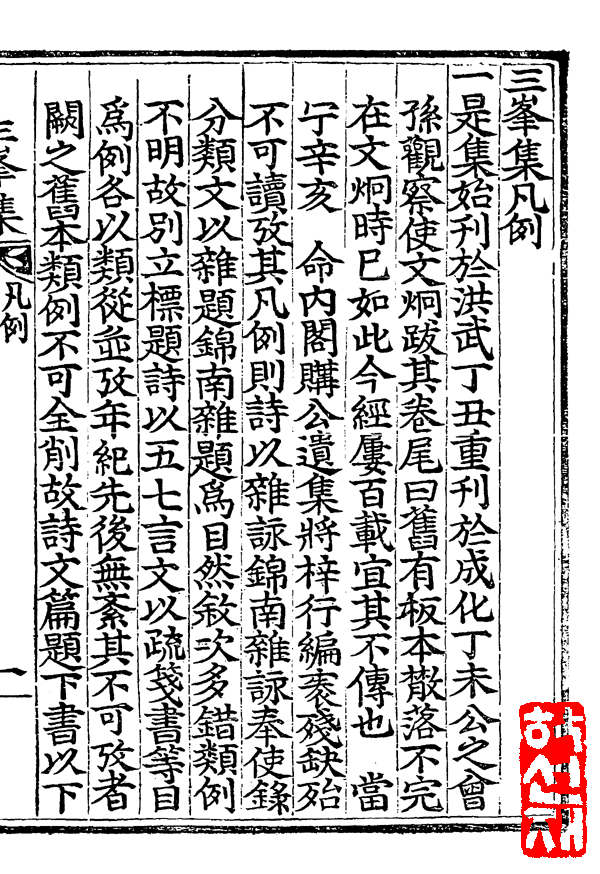 三峯集凡例
一是集始刊於洪武丁丑重刊於成化丁未公之曾
孫觀察使文炯跋其卷尾曰舊有板本散落不完
在文炯時已如此今經屢百載宜其不傳也　當
宁辛亥　命內閣購公遺集將梓行編袠殘缺殆
不可讀攷其凡例則詩以雜詠錦南雜詠奉使錄
分類文以雜題錦南雜題爲目然敘次多錯類例
不明故別立標題詩以五七言文以疏箋書等目
爲例各以類從並攷年紀先後無紊其不可攷者
闕之舊本類例不可全削故詩文篇題下書以下
三峯集
凡例
一